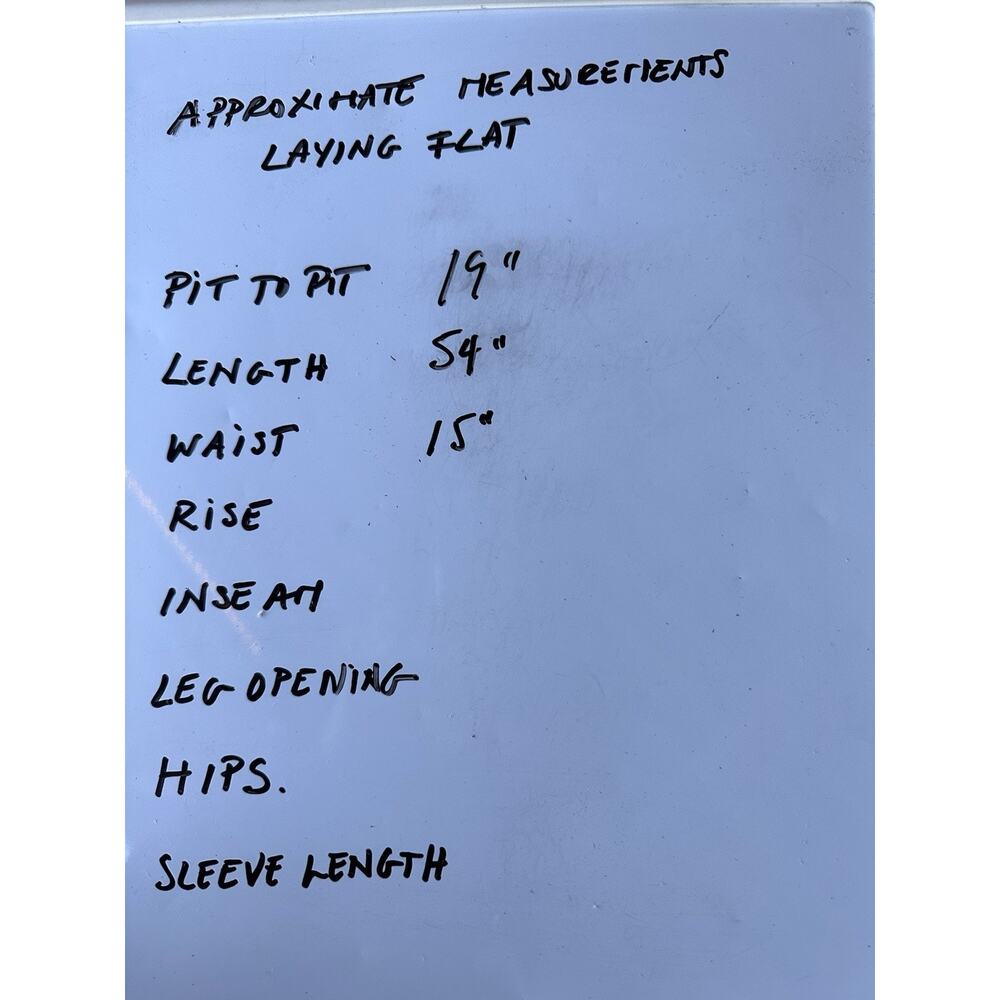 APPROXIMATE MEASUREMENTS
LAYING FLAT
PiT TO PiT 19"
LENGTH 54"
WAiST 15"
RiSE
INSEAM
LEG OPENiNG
HIPS.
SLEEVE LENGTH